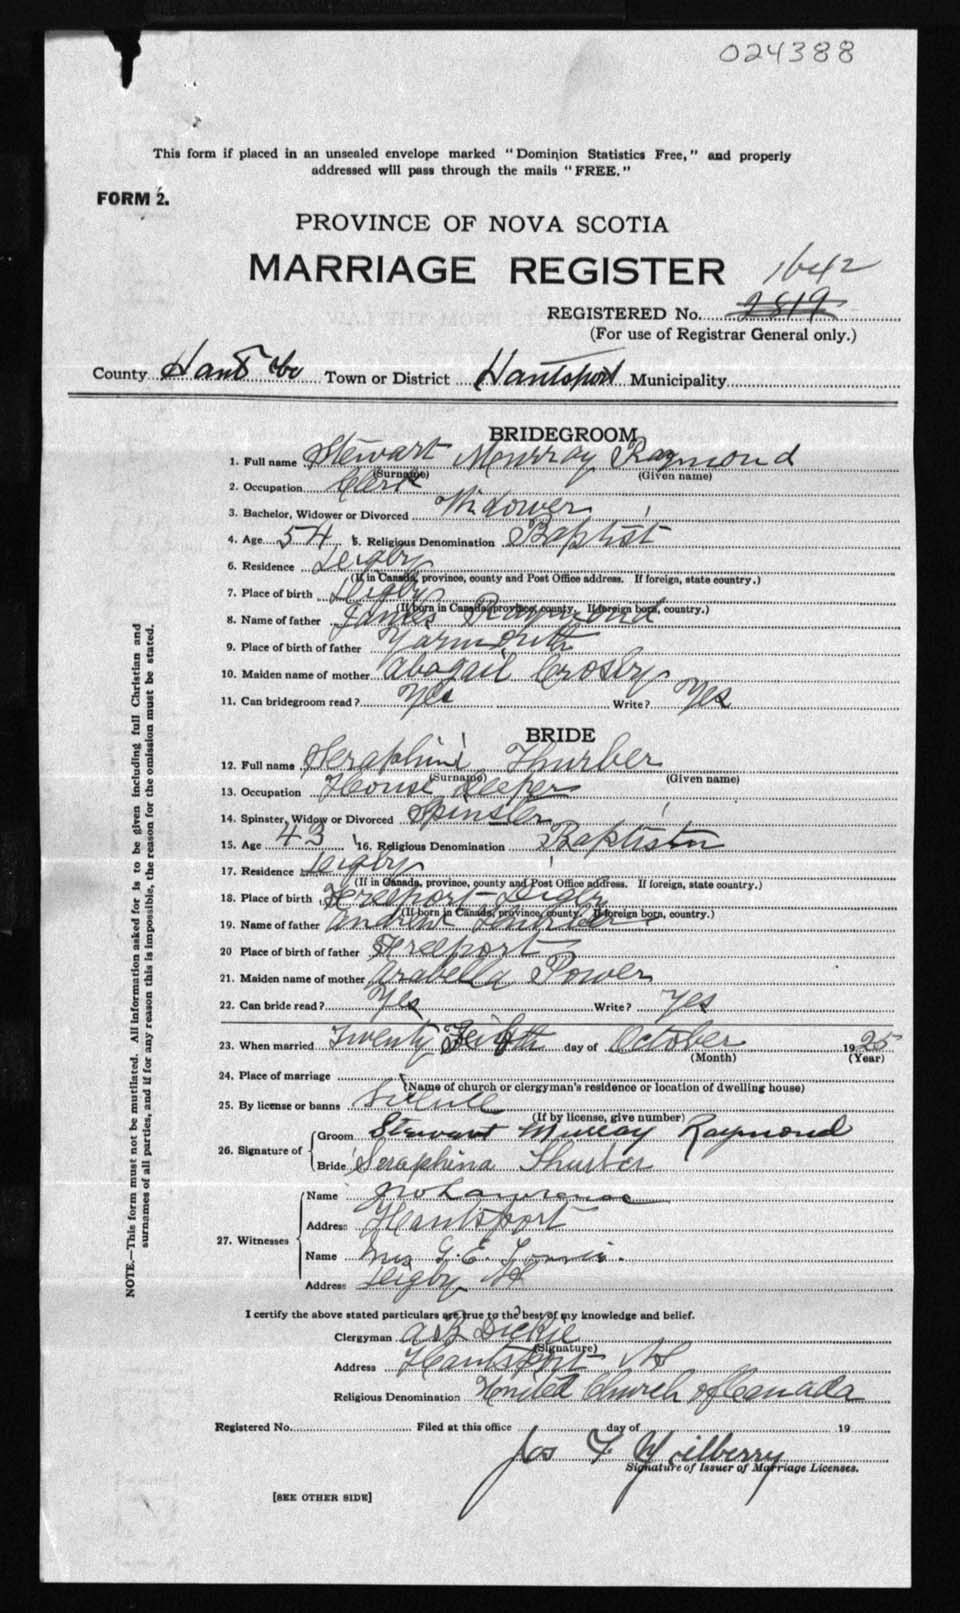 024388
This form if placed in an unsealed envelope marked "Dominion Statistics Free," and properly
addressed will pass through the mails "FREE."
FORM 2.
PROVINCE OF NOVA SCOTIA
MARRIAGE REGISTER
1642
REGISTERED No. 2819
(For use of Registrar General only.)
County Hants Co Town or District Hantsport Municipality
BRIDEGROOM
1. Full name Stewart Murray Raymond
(Surname) (Given name)
2. Occupation Clerk
3. Bachelor, Widower or Divorced Widower
4. Age 54 5. Religious Denomination Baptist
6. Residence Digby
(If in Canada, province, county and Post Office address. If foreign, state country.)
7. Place of birth Digby
(If born in Canada, province, county. If foreign born, country.)
8. Name of father James Raymond
9. Place of birth of father Yarmouth
10. Maiden name of mother Abagail Crosby
11. Can bridegroom read? Yes Write? Yes
BRIDE
12. Full name Seraphine Thurber
(Surname) (Given name)
13. Occupation House Keeper
14. Spinster, Widow or Divorced Spinster
15. Age 43 16. Religious Denomination Baptist
17. Residence Digby
(If in Canada, province, county and Post Office address. If foreign, state country.)
18. Place of birth Freeport Digby
(If born in Canada, province, county. If foreign born, country.)
19. Name of father Andrew Thurber
20 Place of birth of father Freeport
21. Maiden name of mother Arabella Power
22. Can bride read? Yes Write? Yes
23. When married Twenty Fifth day of October 1925
(Month) (Year)
24. Place of marriage
(Name of church or clergyman's residence or location of dwelling house)
25. By license or banns
(If by license, give number)
26. Signature of
Groom Stewart Murray Raymond
Bride Seraphina Thurber
27. Witnesses
Name Jno Lawrence
Address Hantsport
Name Mrs G. E.
Address Digby NS
I certify the above stated particulars are true to the best of my knowledge and belief.
Clergyman A B Dickie
(Signature)
Address Hantsport NS
Religious Denomination United Church of Canada
Registered No. Filed at this office day of 19
Jos F
Signature of Issuer of Marriage Licenses.
[SEE OTHER SIDE]
NOTE.—This form must not be mutilated. All information asked for is to be given including full Christian and
surnames of all parties, and if for any reason this is impossible, the reason for the omission must be stated.